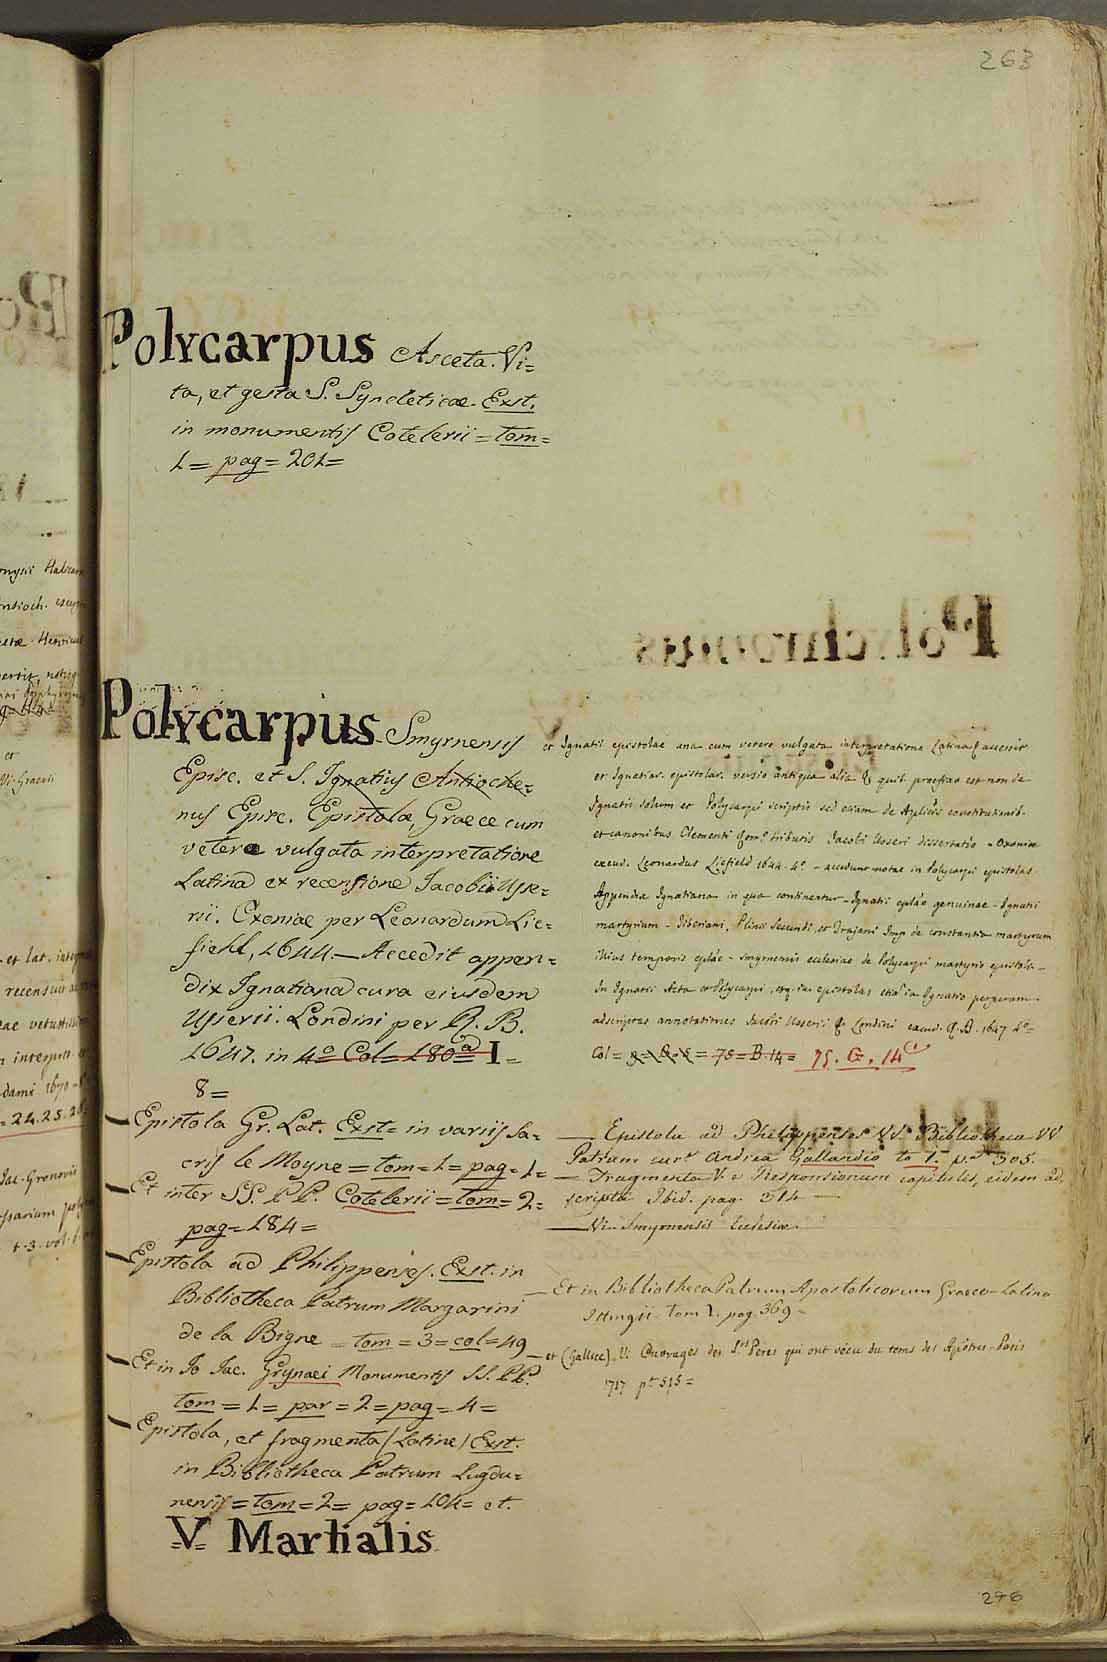 263
Polycarpus Asceta. Vi=
ta, et gesta S. Syncleticae. Exst.
in monumentis Cotelerii = tom=
1 = pag = 201=
Polycarpus Smyrnensis
Episc. et S. Ignatius Antioche=
nus Episc. Epistolae, Graece cum
vetere vulgata interpretatione
Latina ex recensione Jacobi Usse=
rii. Oxoniae per Leonardum Lic=
field, 1644. — Accedit appen=
dix Ignatiana cura eiusdem
Usserii. Londini per R. B.
1647. in 4º Col = 180ª = I =
8=
Epistola Gr. Lat. Exst= in variis sa=
cris le Moyne = tom = 1 = pag = 1=
Et inter SS. PP. Cotelerii = tom = 2=
pag = 184 =
Epistola ad Philippenses. Exst. in
Bibliotheca Patrum Margarini
de la Bigne = tom = 3 = col = 49
Et in Jo Jac. Grynaei Monumentis SS. PP.
tom = 1 = par = 2 = pag = 4 =
Epistola, et fragmenta / Latine / Exst.
in Bibliotheca Patrum Lugdu=
nensis = tom = 2 = pag = 104 = et.
=V= Martialis
et Ignatii epistolae una cum vetere vulgata interpretatione Latina accessit
et Ignatiar. epistolar. versio antiqua alia quib. praefixa est non de
Ignatii solum et Polycarpi scriptis sed etiam de Aplicis constitutionib.
et canonibus Clementi tributis Jacobi Usseri dissertatio = Oxoniae
excud. Leonardus Licfield 1644. 4º. — accedunt notae in Polycarpi epistolas.
Appendix Ignatiana in qua continentur — Ignatii genuinae — Ignatii
martyrium — Tiberiani, Plinii Secundi, et Trajani Imp de constantia martyrum
illius temporis — Smyrnensis ecclesiae de Polycarpi martyrio epistola —
In Ignatii Acta et Polycarpi, epistolas Ignatio perperam
adscriptas annotationes Jacobi Usserii Londini excud. R. B. 1647 4º=
Col = = 75 = B. 14 = 75. G. 14
— Epistola ad Philippenses V. Bibliotheca VV
Patrum curª Andrea Gallandio to 1. pª 305.
— Fragmenta V. e Responsionum capitulis, eidem ad,
scripta Ibid. pag. 314 —
— Vi. Smyrnensis Ecclesia.
— Et in Bibliotheca Patrum Apostolicorum Graeco-Latina
Ittingii. Tom 1. pag 369 =
— et (Gallice). Vi Ouvrages des Sts Peres qui ont vécu du tems des Apôtres = Paris
1717 pª 515 =
276